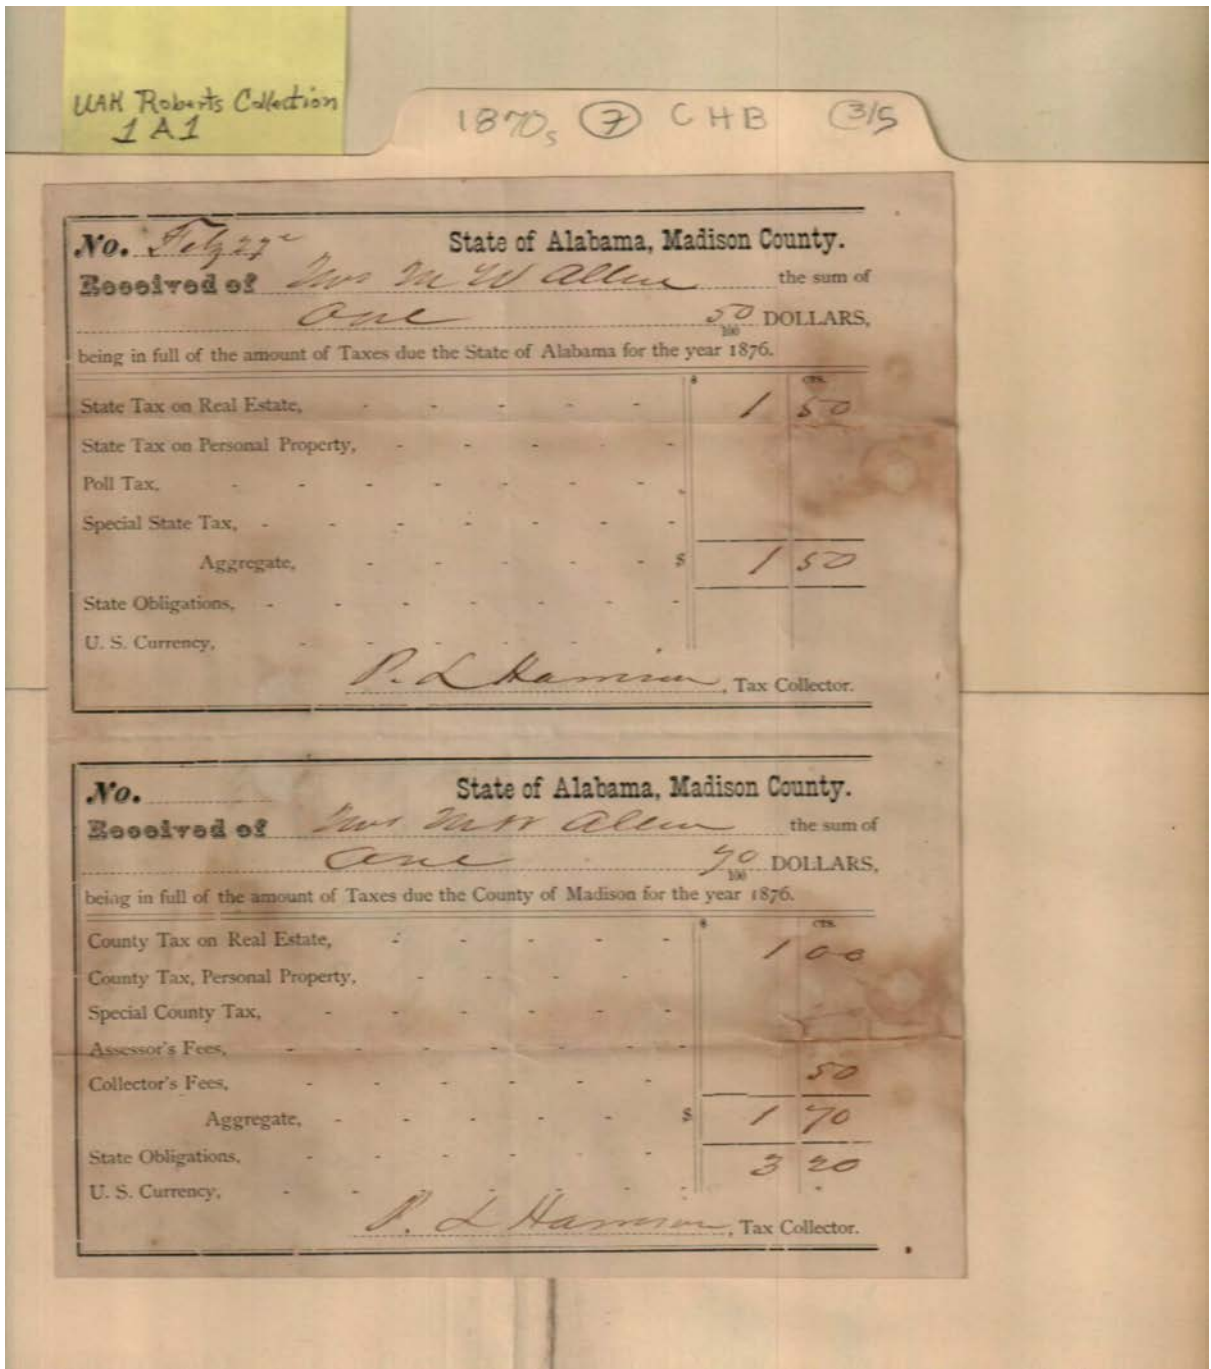 UAH Roberts Collection
1A1
1870s 7 CHB 3/5
No. Feb 27
State of Alabama, Madison County.
Received of Mrs M W Allen the sum of
One 50/100 DOLLARS,
being in full of the amount of Taxes due the State of Alabama for the year 1876.
$ CTS.
State Tax on Real Estate, - - - - - 1 50
State Tax on Personal Property, - - - - -
Poll Tax, - - - - - - -
Special State Tax, - - - - - - -
Aggregate, - - - - - $ 1 50
State Obligations, - - - - - - -
U. S. Currency, - - - - - -
P. L Harrison, Tax Collector.
No.
State of Alabama, Madison County.
Received of Mrs M W Allen the sum of
One 70/100 DOLLARS,
being in full of the amount of Taxes due the County of Madison for the year 1876.
$ CTS.
County Tax on Real Estate, - - - - - 1 00
County Tax, Personal Property, - - - - -
Special County Tax, - - - - - -
Assessor's Fees, - - - - - - -
Collector's Fees, - - - - - - 50
Aggregate, - - - - - $ 1 70
State Obligations, - - - - - - 3 20
U. S. Currency, - - - - - - -
P. L Harrison, Tax Collector.